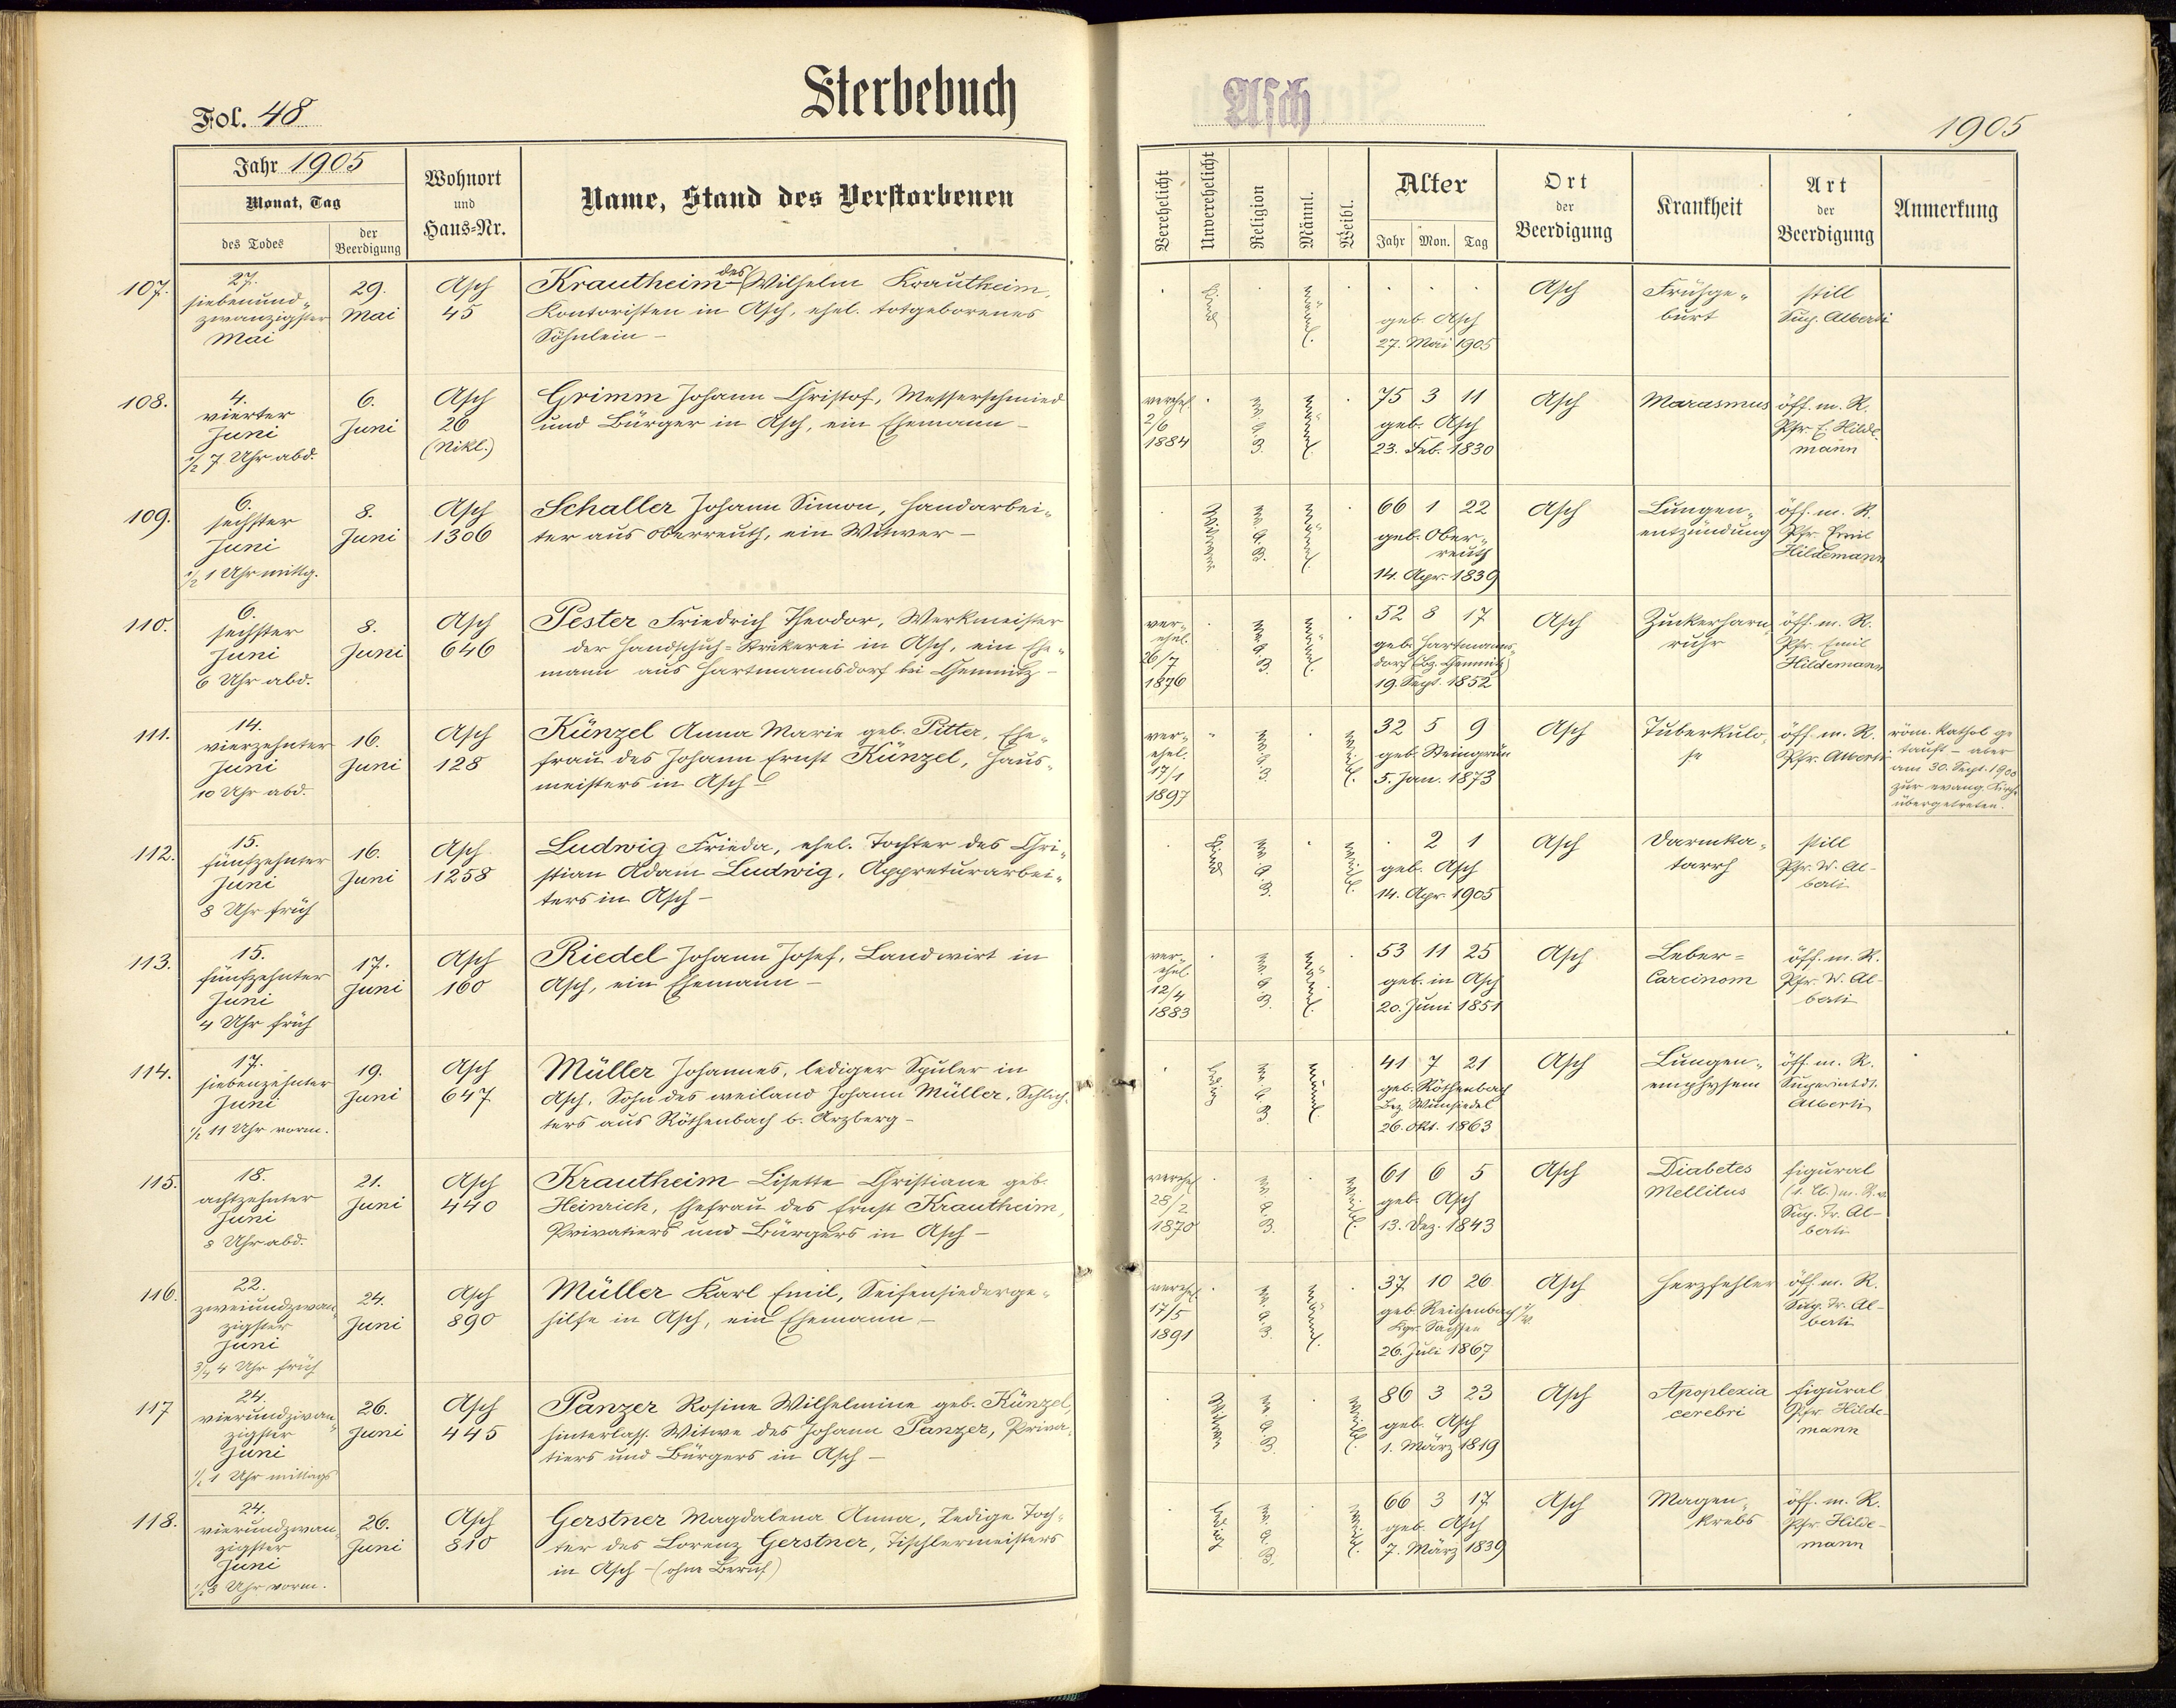 Sterbebuch
Asch
Fol. 48
1905
Jahr 1905
Monat, Tag
des Todes
der Beerdigung
Wohnort
und
Haus-Nr.
Name, Stand des Verstorbenen
Verehelicht
Unverehelicht
Religion
Männl.
Weibl.
Alter
Jahr Mon. Tag
Ort
der
Beerdigung
Krankheit
Art
der
Beerdigung
Anmerkung
107.
27.
siebenund-
zwanzigster
Mai
29.
Mai
Asch
45
Krautheim des Wilhelm Krautheim,
Kontoristen in Asch, ehel. totgeborenes
Söhnlein –
Kind
männl.
geb. Asch
27. Mai 1905
Asch
Frühge-
burt
still
Sup. Alberti
108.
4.
vierter
Juni
1/2 7 Uhr abd.
6.
Juni
Asch
26
(Nikl.)
Grimm Johann Christof, Messerschmied
und Bürger in Asch, ein Ehemann –
verehel.
2/6
1884
ev. A. B.
männl.
75 3 11
geb. Asch
23. Feb. 1830
Asch
Marasmus
öff. m. R.
Pfr. E. Hilde-
mann
109.
6.
sechster
Juni
1/2 1 Uhr mittg.
8.
Juni
Asch
1306
Schaller Johann Simon, Handarbei-
ter aus Oberreuth, ein Witwer –
Witwer
ev. A. B.
männl.
66 1 22
geb. Ober-
reuth
14. Apr. 1839
Asch
Lungen-
entzündung
öff. m. R.
Pfr. Emil
Hildemann
110.
6.
sechster
Juni
6 Uhr abd.
8.
Juni
Asch
646
Pester Friedrich Theodor, Werkmeister
der Handschuh-Strikerei in Asch, ein Ehe-
mann aus Hartmannsdorf bei Chemnitz –
ver-
ehel.
26/7
1876
ev. A. B.
männl.
52 8 17
geb. Hartmanns-
dorf (Bz. Chemnitz)
19. Sept. 1852
Asch
Zuckerharn-
ruhr
öff. m. R.
Pfr. Emil
Hildemann
111.
14.
vierzehnter
Juni
10 Uhr abd.
16.
Juni
Asch
128
Künzel Anna Marie geb. Pitter, Ehe-
frau des Johann Ernst Künzel, Haus-
meisters in Asch –
ver-
ehel.
17/1
1897
ev. A. B.
weibl.
32 5 9
geb. Steingrün
5. Jan. 1873
Asch
Tuberkulo-
se
öff. m. R.
Pfr. Alberti
röm. kathol. ge
tauft – aber
am 30. Sept. 1900
zur evang. Kirche
übergetreten.
112.
15.
fünfzehnter
Juni
8 Uhr früh
16.
Juni
Asch
1258
Ludwig Frieda, ehel. Tochter des Chri-
stian Adam Ludwig, Appreturarbei-
ters in Asch –
Kind
ev. A. B.
weibl.
2 1
geb. Asch
14. Apr. 1905
Asch
Darmka-
tarrh
still
Pfr. W. Al-
berti
113.
15.
fünfzehnter
Juni
4 Uhr früh
17.
Juni
Asch
160
Riedel Johann Josef, Landwirt in
Asch, ein Ehemann –
ver-
ehel.
12/4
1883
ev. A. B.
männl.
53 11 25
geb. in Asch
20. Juni 1851
Asch
Leber=
Carcinom
öff. m. R.
Pfr. W. Al-
berti
114.
17.
siebenzehnter
Juni
1/2 11 Uhr vorm.
19.
Juni
Asch
647
Müller Johannes, lediger Spuler in
Asch, Sohn des weiland Johann Müller, Schlich-
ters aus Röthenbach b. Arzberg –
ledig
ev. A. B.
männl.
41 7 21
geb. Röthenbach
Bez. Wunsiedel
26. Okt. 1863
Asch
Lungen-
emphysem
öff. m. R.
Superintdt.
Alberti
115.
18.
achtzehnter
Juni
8 Uhr abd.
21.
Juni
Asch
440
Krautheim Lisette Christiane geb.
Heinrich, Ehefrau des Ernst Krautheim,
Privatiers und Bürgers in Asch –
verehel.
28/2
1870
ev. A. B.
weibl.
61 6 5
geb. Asch
13. Dez. 1843
Asch
Diabetes
Mellitus
figural
(1. Cl.) m. R. v.
Sup. Tr. Al-
berti
116.
22.
zweiundzwan-
zigster
Juni
3/4 4 Uhr früh
24.
Juni
Asch
890
Müller Karl Emil, Seifensiederge-
hilfe in Asch, ein Ehemann –
verehel.
17/5
1891
ev. A. B.
männl.
37 10 26
geb. Reichenbach i/V.
Kgr. Sachsen
26. Juli 1867
Asch
Herzfehler
öff. m. R.
Sup. Tr. Al-
berti
117
24.
vierundzwan-
zigster
Juni
1/2 1 Uhr mittags
26.
Juni
Asch
445
Panzer Rosine Wilhelmine geb. Künzel,
hinterlass. Witwe des Johann Panzer, Priva-
tiers und Bürgers in Asch –
Witwe
ev. A. B.
weibl.
86 3 23
geb. Asch
1. März 1819
Asch
Apoplexia
cerebri
figural
Pfr. Hilde-
mann
118.
24.
vierundzwan-
zigster
Juni
1/2 8 Uhr vorm.
26.
Juni
Asch
810
Gerstner Magdalena Anna, Ledige Toch-
ter des Lorenz Gerstner, Tischlermeisters
in Asch – (ohne Beruf)
ledig
ev. A. B.
weibl.
66 3 17
geb. Asch
7. März 1839
Asch
Magen-
krebs
öff. m. R.
Pfr. Hilde-
mann